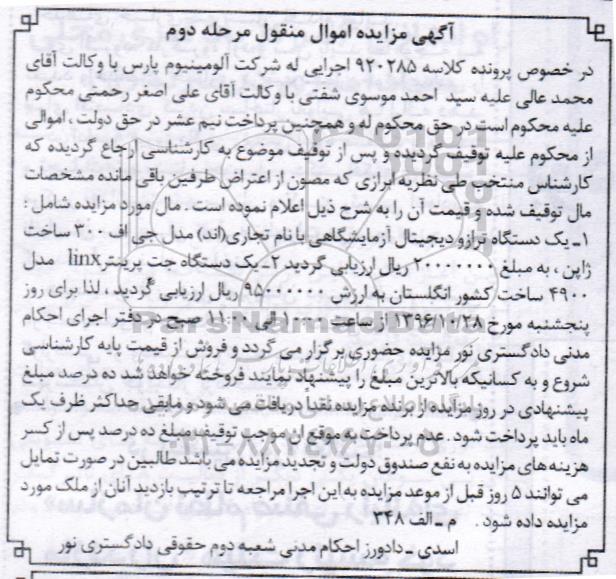 آگهی مزایده اموال منقول مرحله دوم
در خصوص پرونده کلاسه ۹۲۰۲۸۵ اجرایی له شرکت آلومینیوم پارس با وکالت آقای
محمد عالی علیه سید احمد موسوی شفتی با وکالت آقای علی اصغر رحمتی محکوم
علیه محکوم است در حق محکوم له و همچنین پرداخت نیم عشر در حق دولت ، اموالی
از محکوم علیه توقیف گردیده و پس از توقیف موضوع به کارشناسی ارجاع گردیده که
کارشناس منتخب طی نظریه ابرازی که مصون از اعتراض طرفین باقی مانده مشخصات
مال توقیف شده و قیمت آن را به شرح ذیل اعلام نموده است. مال مورد مزایده شامل :
۱ـ یک دستگاه ترازو دیجیتال آزمایشگاهی با نام تجاری(اند) مدل جی اف ۳۰۰ ساخت
ژاپن ، به مبلغ ۲۰۰۰۰۰۰۰ ریال ارزیابی گردید ۲ـ یک دستگاه جت پرینتر linx مدل
۴۹۰۰ ساخت کشور انگلستان به ارزش ۹۵۰۰۰۰۰۰ ریال ارزیابی گردید ، لذا برای روز
پنجشنبه مورخ ۱۳۹۶/۱۰/۲۸ از ساعت ۱۰:۰۰ الی ۱۱:۰۰ صبح در دفتر اجرای احکام
مدنی دادگستری نور مزایده حضوری برگزار می گردد و فروش از قیمت پایه کارشناسی
شروع و به کسانیکه بالاترین مبلغ را پیشنهاد نمایند فروخته خواهد شد ده درصد مبلغ
پیشنهادی در روز مزایده از برنده مزایده نقدا دریافت می شود و مابقی حداکثر ظرف یک
ماه باید پرداخت شود . عدم پرداخت به موقع آن موجب توقیف مبلغ ده درصد پس از کسر
هزینه های مزایده به نفع صندوق دولت و تجدید مزایده می باشد طالبین در صورت تمایل
می توانند ۵ روز قبل از موعد مزایده به این اجرا مراجعه تا ترتیب بازدید آنان از ملک مورد
مزایده داده شود . م ـ الف ۳۴۸
اسدی ـ دادورز احکام مدنی شعبه دوم حقوقی دادگستری نور
ParsNamadData